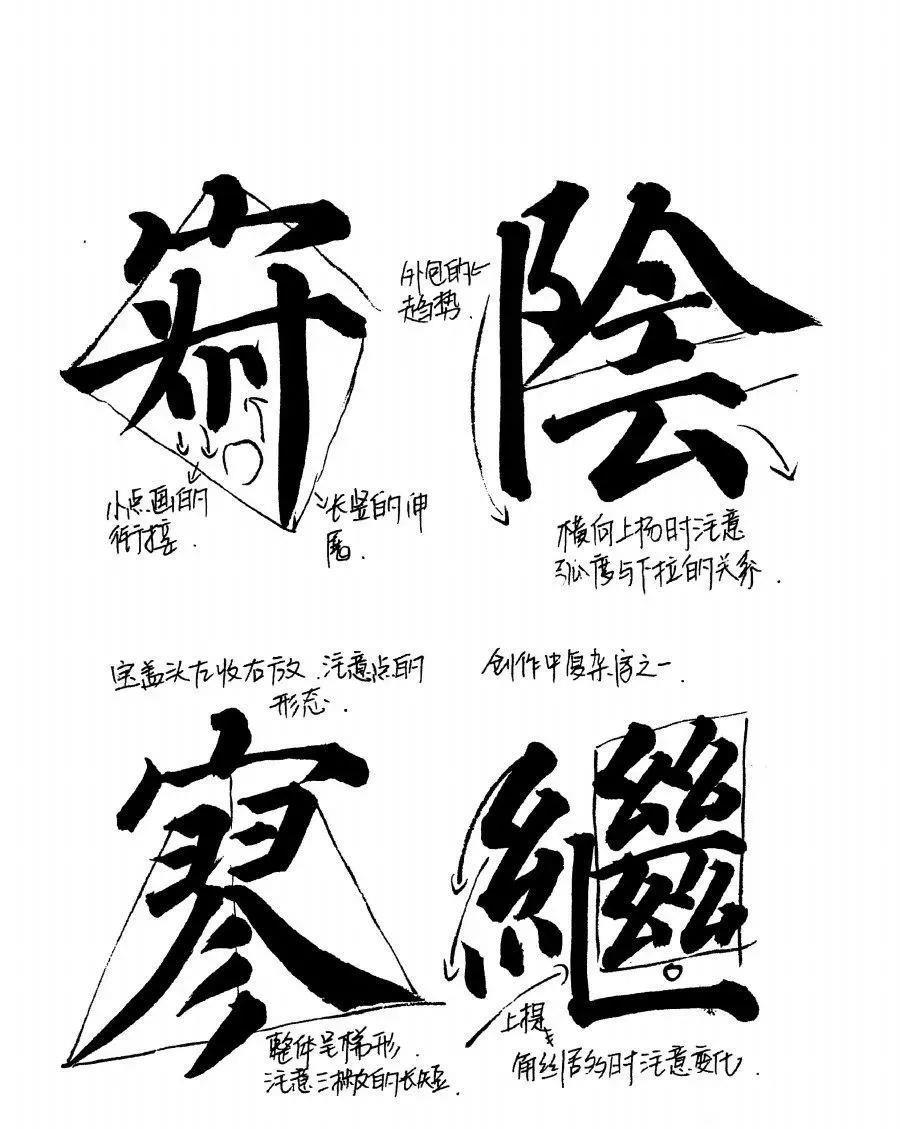 寂
陰
外包的
趋势.
小点画的
衔接.
长竖的伸
展.
横向上扬时注意
弧度与下拉的关系.
宝盖头左收右放.注意点的
形态.
创作中复杂字之一.
寥
繼
整体呈梯形.
注意三撇的长短.
上提
角丝居多时注意变化.